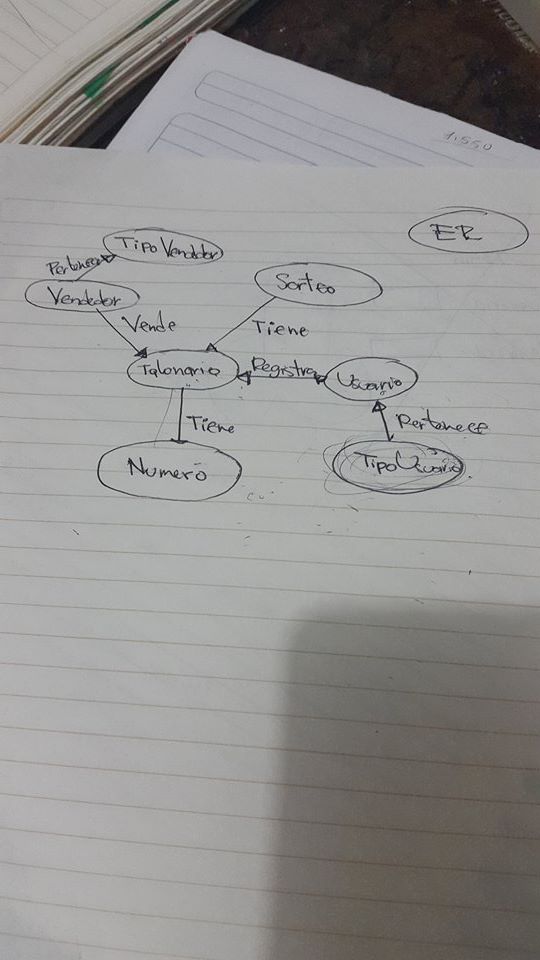 1.550
ER
Tipo Vendedor
Pertenece
Vendedor
Sorteo
Vende
Tiene
Talonario
Registra
Usuario
Tiene
Pertenece
Numero
Tipo Usuario